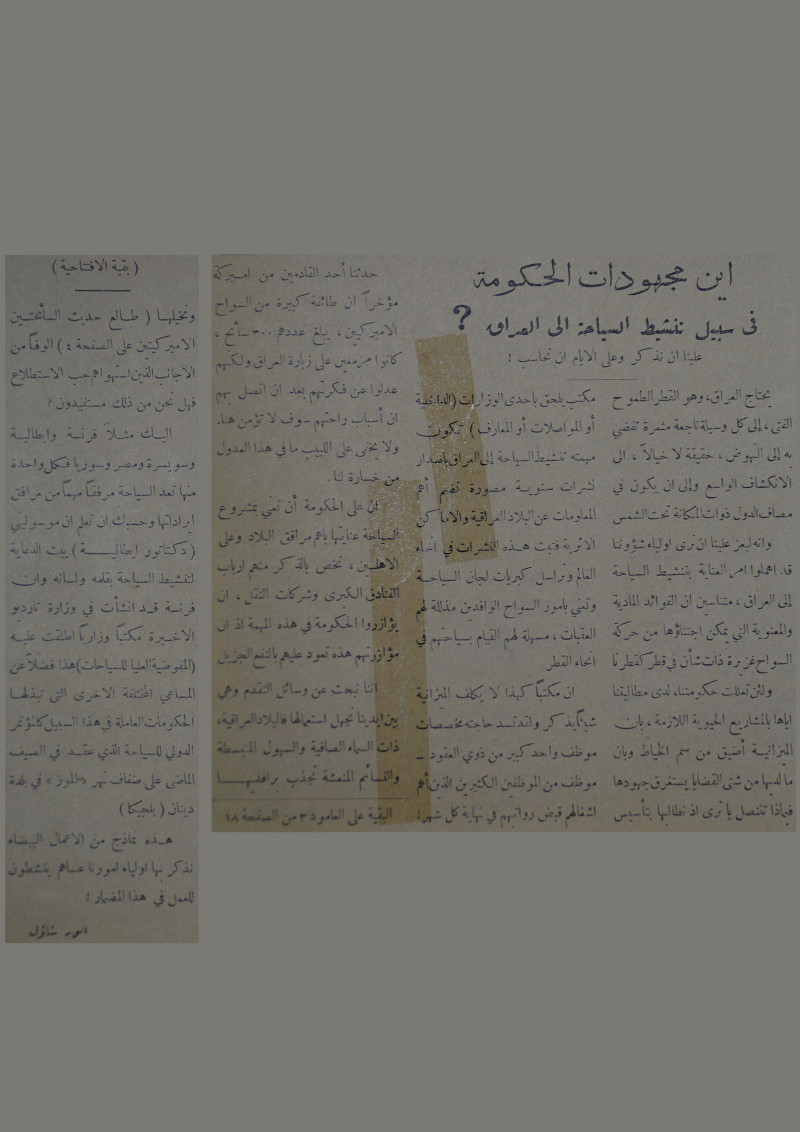 اين مجهودات الحكومة
فى سبيل تنشيط السياحة الى العراق ?
علينا ان نذكر وعلى الايام ان تحاسب !
يحتاج العراق، وهو القطر الطموح
الفتى، إلى كل وسيلة ناجعة مثمرة تفضي
به إلى النهوض، حقيقة لا خيالاً، الى
الانكشاف الواسع وإلى ان يكون في
مصاف الدول ذوات المكانة تحت الشمس
وانه ليعز علينا ان نرى اولياء شؤوننا
قد اهملوا امر العناية بتنشيط السياحة
إلى العراق، متناسين ان الفوائد المادية
والمعنوية التي يمكن اجتناؤها من حركة
السواح غزيرة ذات شأن في قطر كقطرنا
ولئن تعللت حكومتنا، لدى مطالبتنا
اياها بالمشاريع الحيوية اللازمة، بان
الميزانية أضيق من سم الخياط وبان
ما لديها من شتى القضايا يستغرق جهودها
فبماذا تتنصل يا ترى اذ نطالبها بتأسيس
مكتب يلحق باحدى الوزارات (الداخلية
أو المواصلات أو المعارف) تكون
مهمته تنشيط السياحة إلى العراق باصدار
نشرات سنوية مصورة تضم أهم
المعلومات عن البلاد العراقية والاماكن
الاثرية فتبث هذه النشرات في انحاء
العالم وتراسل كبريات لجان السياحة
وتعني بامور السواح الوافدين مذللة لهم
العقبات، مسهلة لهم القيام بسياحتهم في
انحاء القطر
ان مكتباً كهذا لا يكلف الميزانية
شيئاً يذكر ولقد تسد حاجته مخصصات
موظف واحد كبير من ذوي العقود ـ
موظف من الموظفين الكثيرين الذين أهم
اشغالهم قبض رواتبهم في نهاية كل شهر !
حدثنا أحد القادمين من اميركة
مؤخراً ان طائفة كبيرة من السواح
الاميركيين، يبلغ عددهم ٣٠٠ سائح،
كانوا مزمعين على زيارة العراق ولكنهم
عدلوا عن فكرتهم بعد ان اتصل بهم
ان أسباب راحتهم سوف لا تؤمن هنا.
ولا يخفى على اللبيب ما في هذا العدول
من خسارة لنا.
ان على الحكومة أن تعني بمشروع
السياحة عنايتها باهم مرافق البلاد وعلى
الاهلين، نخص بالذكر منهم ارباب
الفنادق الكبرى وشركات النقل، ان
يؤازروا الحكومة في هذه المهمة اذ ان
مؤازرتهم هذه تعود عليهم بالنفع الجزيل
اننا نبحث عن وسائل التقدم وهي
بين ايدينا نجهل استعمالها فالبلاد العراقية،
ذات السماء الصافية والسهول المنبسطة
والنسائم المنعشة تجذب برافديها
البقية على العامود ٣ من الصفحة ١٨
( بقية الافتتاحية )
ونخيلها ( طالع حديث السائحتين
الاميركيتين على الصفحة ٤ ) الوفاً من
الاجانب الذين استهواهم حب الاستطلاع
فهل نحن من ذلك مستفيدون ؟
اليك مثلاً فرنسة وإيطالية
وسويسرة ومصر وسوريا فكل واحدة
منها تعد السياحة مرفقاً مهماً من مرافق
ايراداتها وحسبك ان تعلم ان موسوليني
( دكتاتور إيطالية ) يبث الدعاية
لتنشيط السياحة بقلمه ولسانه وان
فرنسة قد انشأت في وزارة تارديو
الاخيرة مكتباً وزارياً اطلقت عليه
(المفوضية العليا للسياحات) هذا فضلاً عن
المساعي المختلفة الاخرى التى تبذلها
الحكومات العاملة في هذا السبيل كالمؤتمر
الدولي للسياحة الذي عقد في الصيف
الماضى على ضفاف نهر «الموز» في بلدة
دينان ( بلجيكا )
هذه نماذج من الاعمال البيضاء
نذكر بها اولياء امورنا عساهم ينشطون
للعمل في هذا المضمار !
انور شاؤل